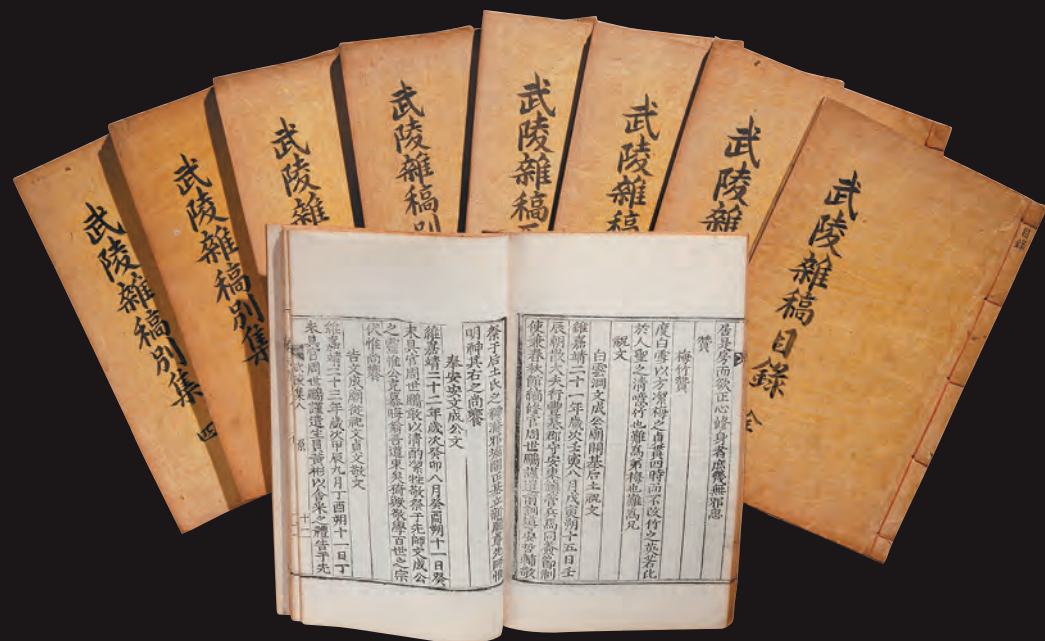 武陵雜稿目錄 全
目錄
武陵雜
武陵雜稿
武陵雜稿
武陵雜稿別
武陵雜
武陵雜稿別集
武陵雜稿別集 四
居是房而欲正心修身者庶幾無邪思
贊
梅竹贊
度白雪以方潔梅之貞貫四時而不改竹之英若比
於人聖之清噫竹也難為弟梅也難為兄
祝文
白雲洞文成公廟開基后土祝文
維嘉靖二十一年歲次壬寅八月戊寅朔十五日壬
辰朝散大夫行豊基郡守安東鎭管兵馬同僉節制
使兼春秋館編修官周世鵬謹遣前訓導
祭于后土氏之神 闢正基立 先師惟
明神其右之尚饗
奉安安文成公文
維嘉靖二十二年歲次癸卯八月癸酉朔十一日癸
未具官周世鵬敢以清酌潔牲敬祭于先師文成公
之靈惟公克慕晦翁吾道東矣猗歟敬學百世之宗
伏惟尚饗
告文成廟從祀文貞文敬文
維嘉靖二十三年歲次甲辰九月丁酉朔十一日丁
未具官周世鵬謹遣生員黃彬以舍采之禮告于先